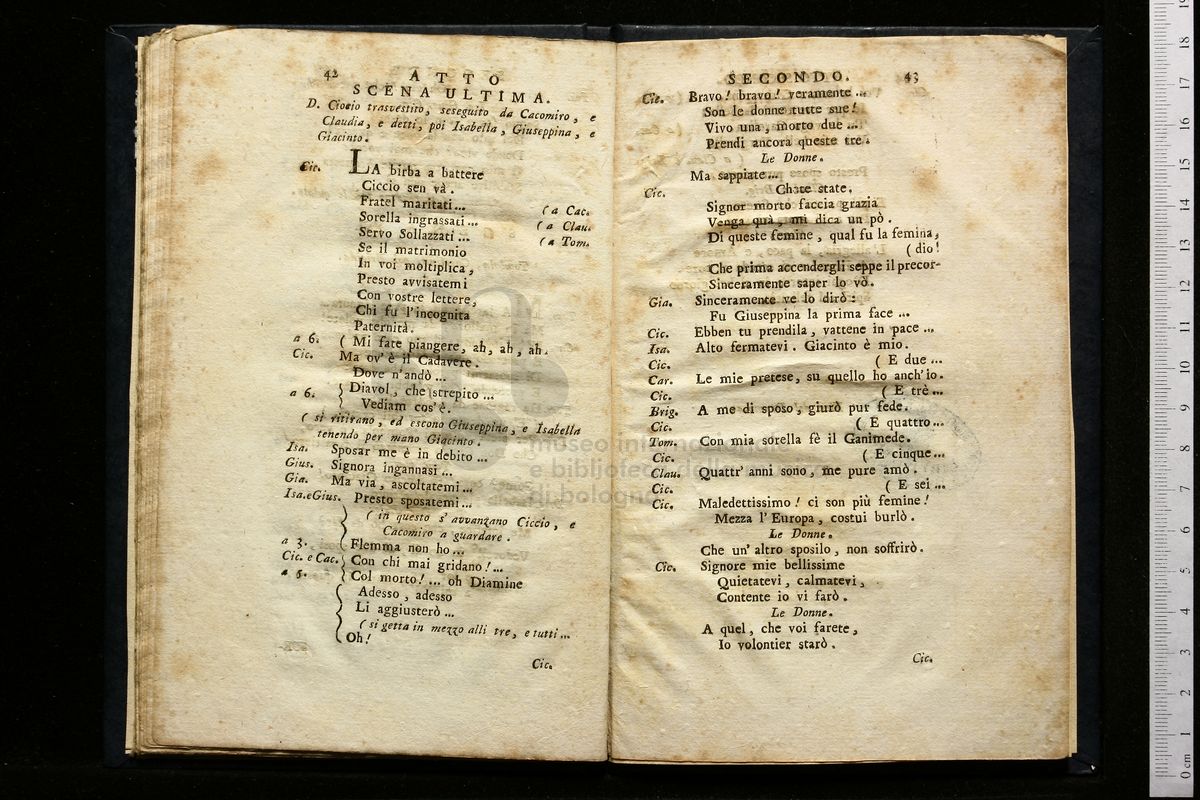 42
ATTO
SCENA ULTIMA.
D. Ciccio trasvestito, seseguito da Cacomiro, e
Claudia, e detti, poi Isabella, Giuseppina, e
Giacinto.
Cic. LA birba a battere
Ciccio sen và.
Fratel maritati... (a Cac.
Sorella ingrassati... (a Clau.
Servo Sollazzati... (a Tom.
Se il matrimonio
In voi moltiplica,
Presto avvisatemi
Con vostre lettere,
Chi fu l'incognita
Paternità.
a 6. ( Mi fate piangere, ah, ah, ah.
Cic. Ma ov' è il Cadavere.
Dove n'andò...
a 6. Diavol, che strepito...
Vediam cos'è.
( si ritirano, ed escono Giuseppina, e Isabella
tenendo per mano Giacinto.
Isa. Sposar me è in debito...
Gius. Signora ingannasi...
Gia. Ma via, ascoltatemi...
Isa.eGius. Presto sposatemi...
( in questo s' avvanzano Ciccio, e
Cacomiro a guardare.
a 3. Flemma non ho...
Cic. e Cac. Con chi mai gridano!...
a 5. Col morto!... oh Diamine
Adesso, adesso
Li aggiusterò...
( si getta in mezzo alli tre, e tutti...
Oh!
Cic.
SECONDO. 43
Cic. Bravo! bravo! veramente...
Son le donne tutte sue!
Vivo una, morto due...
Prendi ancora queste tre.
Le Donne.
Ma sappiate...
Cic. Chate state.
Signor morto faccia grazia
Venga quà, mi dica un pò.
Di queste femine, qual fu la femina,
( dio!
Che prima accendergli seppe il precor-
Sinceramente saper lo vò.
Gia. Sinceramente ve lo dirò:
Fu Giuseppina la prima face...
Cic. Ebben tu prendila, vattene in pace...
Isa. Alto fermatevi. Giacinto è mio.
Cic. ( E due...
Car. Le mie pretese, su quello ho anch'io.
Cic. ( E trè...
Brig. A me di sposo, giurò pur fede.
Cic. ( E quattro...
Tom. Con mia sorella fè il Ganimede.
Cic. ( E cinque...
Clau. Quattr' anni sono, me pure amò.
Cic. ( E sei...
Cic. Maledettissimo! ci son più femine!
Mezza l' Europa, costui burlò.
Le Donne.
Che un' altro sposilo, non soffrirò.
Cic. Signore mie bellissime
Quietatevi, calmatevi,
Contente io vi farò.
Le Donne.
A quel, che voi farete,
Io volontier starò.
Cic.